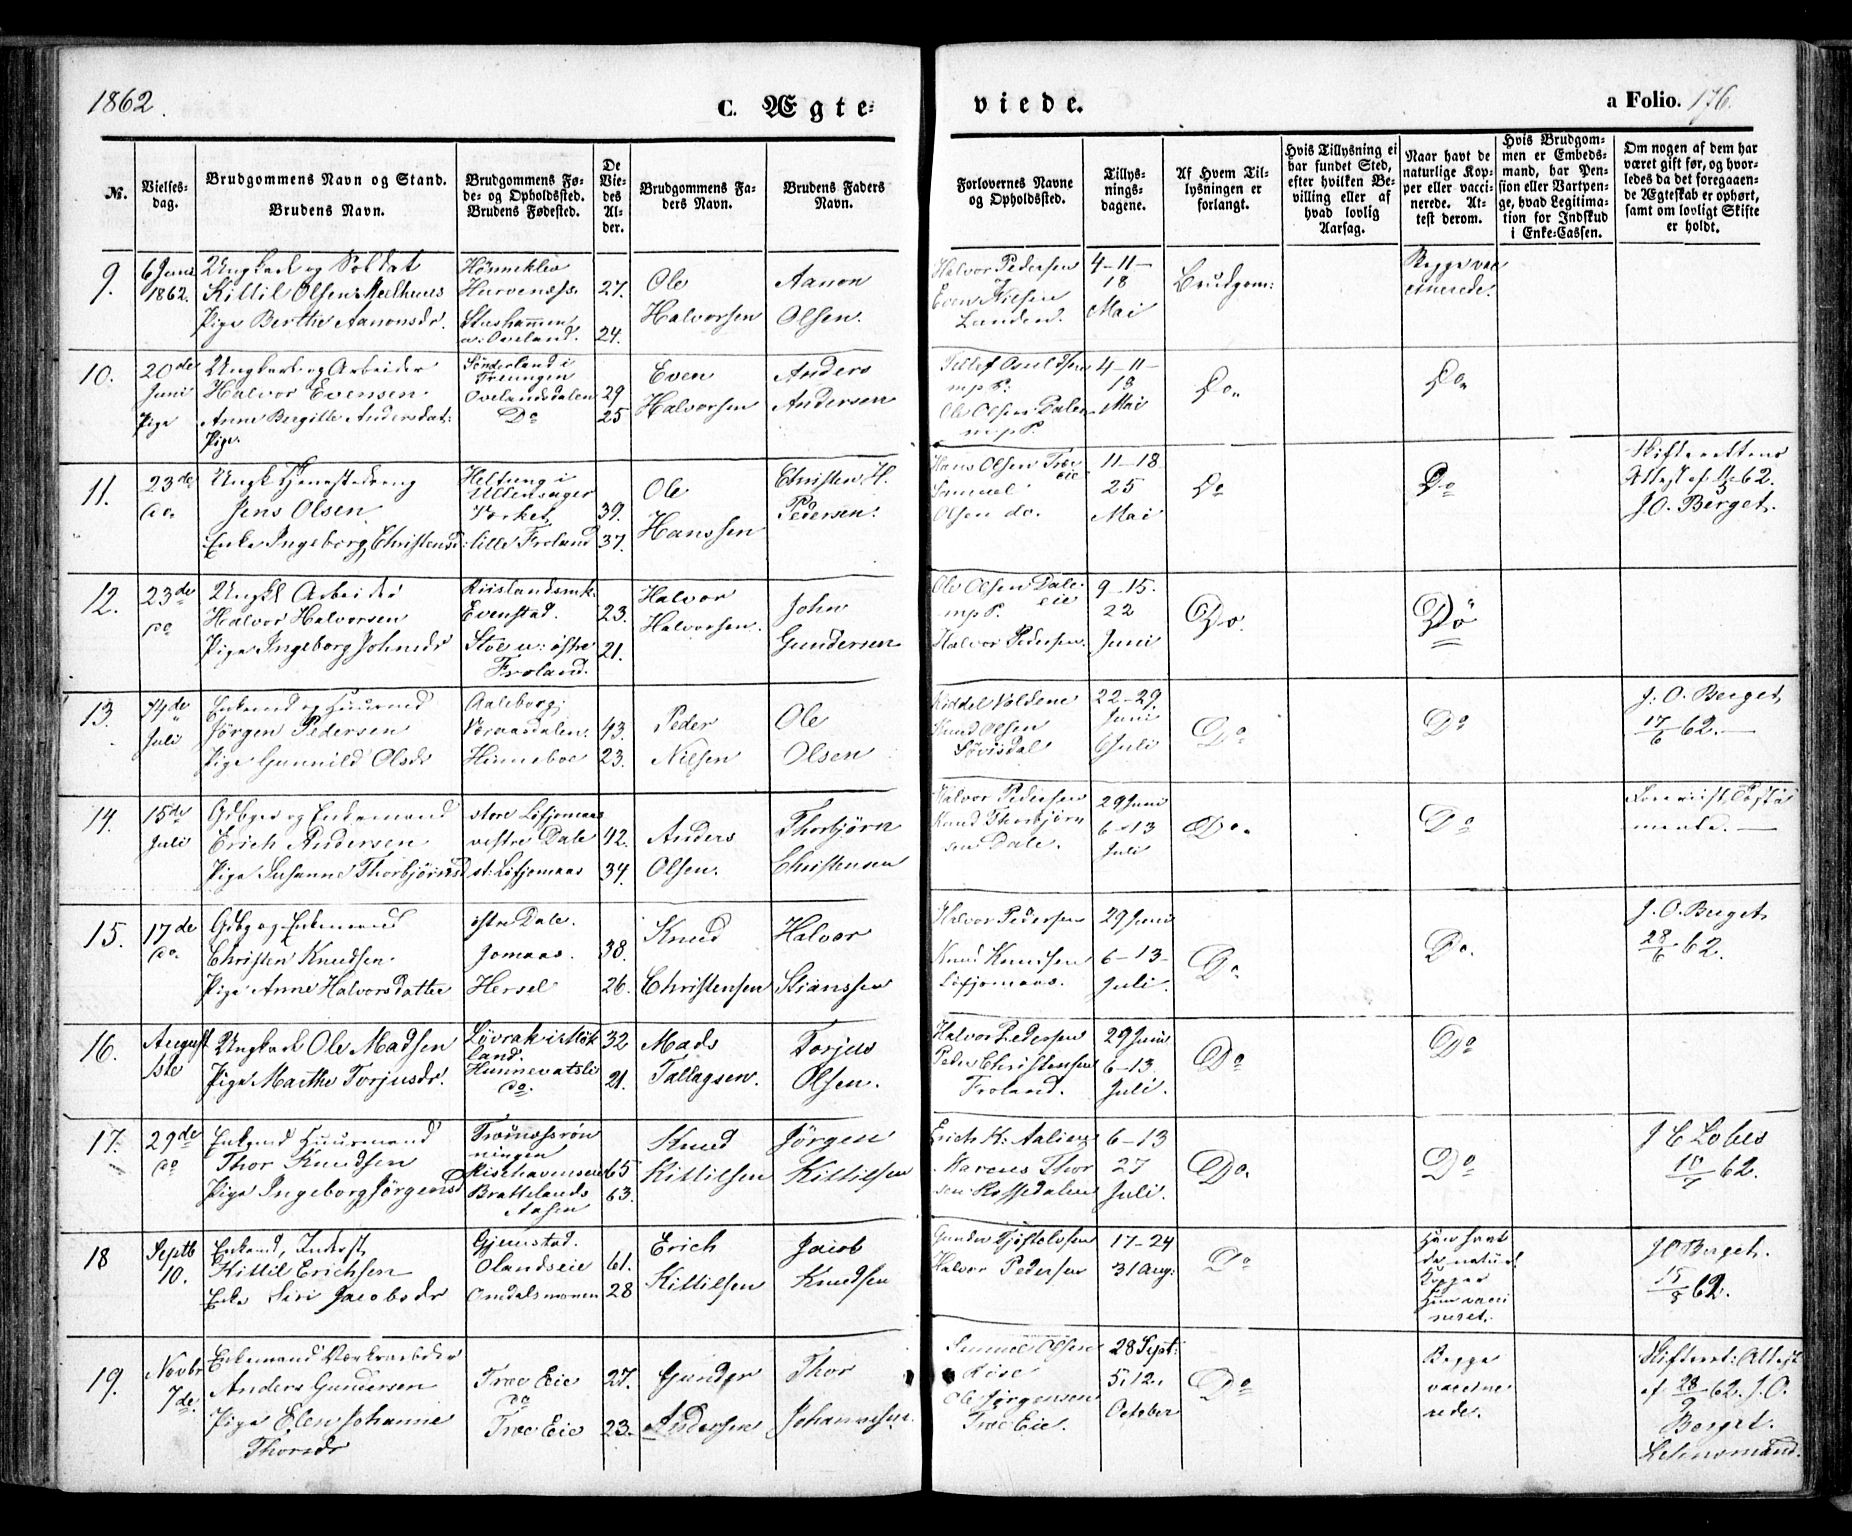 1862.
C. Ægte=
viede.
a Folio. 176.
No.
Vielses-
dag.
Brudgommens Navn og Stand.
Brudens Navn.
Brudgommens Fø-
de- og Opholdssted.
Brudens Fødested.
De
Vie-
des
Al-
der.
Brudgommens Fa-
ders Navn.
Brudens Faders
Navn.
Forlovernes Navne
og Opholdssted.
Tillys-
nings-
dagene.
Af Hvem Til-
lysningen er
forlangt.
Hvis Tillysning ei
har fundet Sted,
efter hvilken Be-
villing eller af
hvad lovlig
Aarsag.
Naar havt de
naturlige Kop-
per eller vacci-
nerede. At-
test derom.
Hvis Brudgom-
men er Embeds-
mand, har Pen-
sion eller Vartpen-
ge, hvad Legitima-
tion for Indskud
i Enke-Cassen.
Om nogen af dem har
været gift før, og hvor-
ledes da det foregaaen-
de Ægteskab er ophørt,
samt om lovligt Skifte
er holdt.
9.
6 Juni
1862.
Ungkarl og Soldat
Kittil Olsen Meelhuus
Pige Berthe Aanonsdr.
27.
24.
Ole
Halvorsen
Aanon
Olsen.
Halvor Pedersen
Even Nilsen
Lunden.
4-11-
18
Mai
Brudgom:
Begge vac
cinerede.
10.
20de
Juni
Pige
Ungkarl og Arbeider
Halvor Evensen
Anne Bergitte Andersdat:
Pige
Sønderland i
Treungen
Ovelandsdalen
Do
29
25
Even
Halvorsen
Anders
Andersen
mpP.
Ole Olsen Dalen
mpP.
4-11-
18
Mai
Do.
Do.
11.
23de
do.
Ungk Tjenestedreng
Jens Olsen
Enke Ingeborg Christensd:
Heltung i
Ullensager
lille Froland
39.
37.
Ole
Hanssen
Christen H.
Pedersen.
Hans Olsen Træ
eie
Samuel
Olsen do.
11-18
25
Mai
Do
Do
Skifterettens
Attest af 62.
J.O. Berget.
12.
23de
do
Ungkl Arbeider
Halvor Halvorsen
Pige Ingeborg Johnsdr
Evenstad.
Støle u: østre
Froland.
23.
21.
Halvor
Halvorsen.
John
Gundersen
Ole Olsen Dale
eie
mpP.
Halvor Pedersen.
9-15.
22
Juni
Do.
Do
13.
Juli
Enkemd og Huusmand
Jörgen Pedersen
Pige Gunnild Olsdr
Aaleborg;
Hinneboe
43.
23.
Peder
Nilsen
Ole
Olsen
Knud Olsen
22-29.
Juni
6 Juli
Do
Do
J. O. Berget
17/6 62.—
14.
15de
Juli
Gdbger og Enkemand
Erich Andersen
Pige Susanne Thorbjörnsd
store Löfjomaas
vestre Dale
st: Löfjomaas
42.
34.
Anders
Olsen.
Thorbjörn
Christensen
Halvor Pedersen
Knud Thorbjörn
sen Dale.
29 Juni
6-13
Juli
Do.
Do
15.
17de
do.
Gdbg og Enkemand
Christen Knudsen.
Pige Anne Halvorsdatter
östre Dale.
Jomaas.
Hersel
38.
26.
Knud
Christensen
Halvor
Stianssen
Halvor Pedersen
Knud Knudsen
Löfjomaas.
29 Juni
6-13-
Juli.
Do
Do.
J. O. Berget
28/6 62.
16.
August
1ste
Ungkarl Ole Madsen
Pige Marthe Torjusdr.
land.
do.
32
21.
Mads
Tallagsen.
Torjus
Olsen.
Halvor Pedersen
Peder Christensen
Froland.
29 Juni
6-13
Juli.
Do
Do
17.
29de
do
Enkemd Huusmand
Thor Knudsen
Pige Ingeborg Jörgensd
ningen
Brattelands
Aasen
65
63.
Knud
Kittilsen
Jörgen
Kittilsen
Marcus Thor
sen
6-13
27
Juli.
Do.
Do
62.
18
Septb
10.
Enkemd, Inderst
Kittil Erichsen
Enke Siri Jacobsdr
Gjerrestad.
Olandseie
Omdalsmonen
61.
28
Erich
Kittilsen
Jacob
Knudsen
Halvor Pedersen
17-24
31 Aug:
Do
Han havt
de naturl
Kopper
Hun vacci
neret.
J O Berget.
15/8 62.
19.
Novbr
7de.
Enkemand Værksarbeider
Anders Gundersen
Pige Elen Johanne
Thorsdr
Træ Eie
do
Træ Eie
27.
23.
Gunder
Andersen
Thor
Johannesen.
Samuel Olsen
Ole Jörgensen
Træ Eie.
28 Sept:
5, 12,
October
Do
Begge
vaccine
rede.
Skifteret: Attest
af 28/9 62. J. O.
Berget.
Lehnsmand.